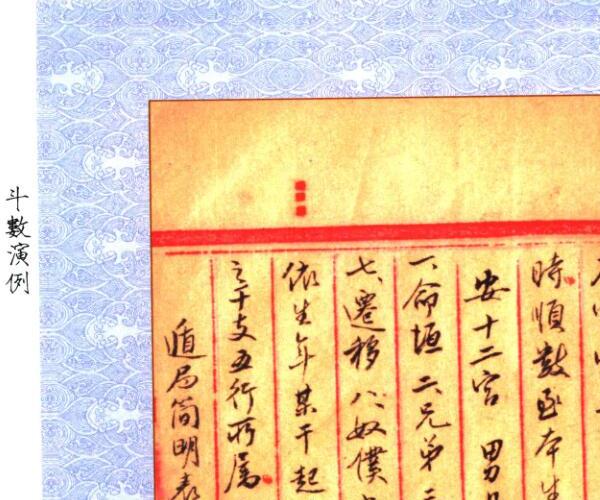 時順數至本生
安十二宮 男
一、命垣 二兄弟 三
七、遷移 八、奴僕
依生年某干起
之干支五行所屬
遁局简明表
斗數演例